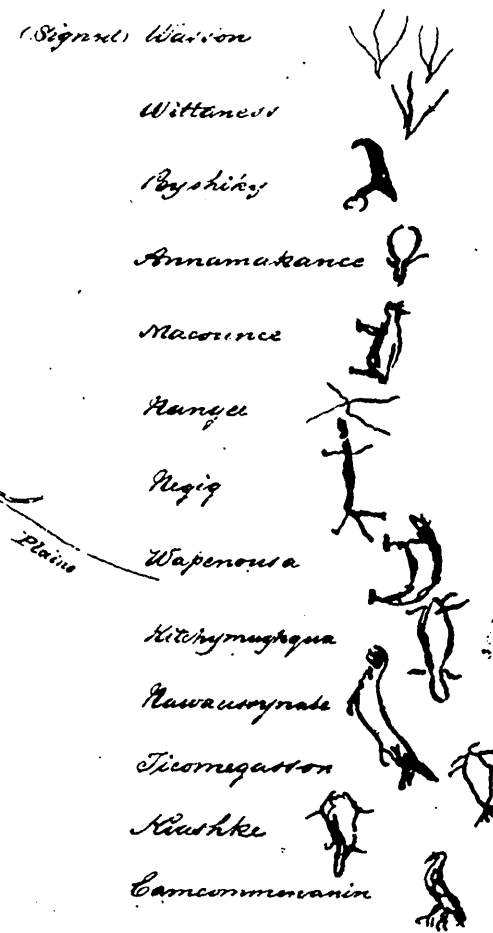 (Signed) Wasson
Wittaness
Pyshiky
Annamakance
Macounce
Nangee
Negig
Plains
Wapenousa
Kitchymughqua
Nawausrynate
Ticomegasson
Kiashke
Camcommenanin